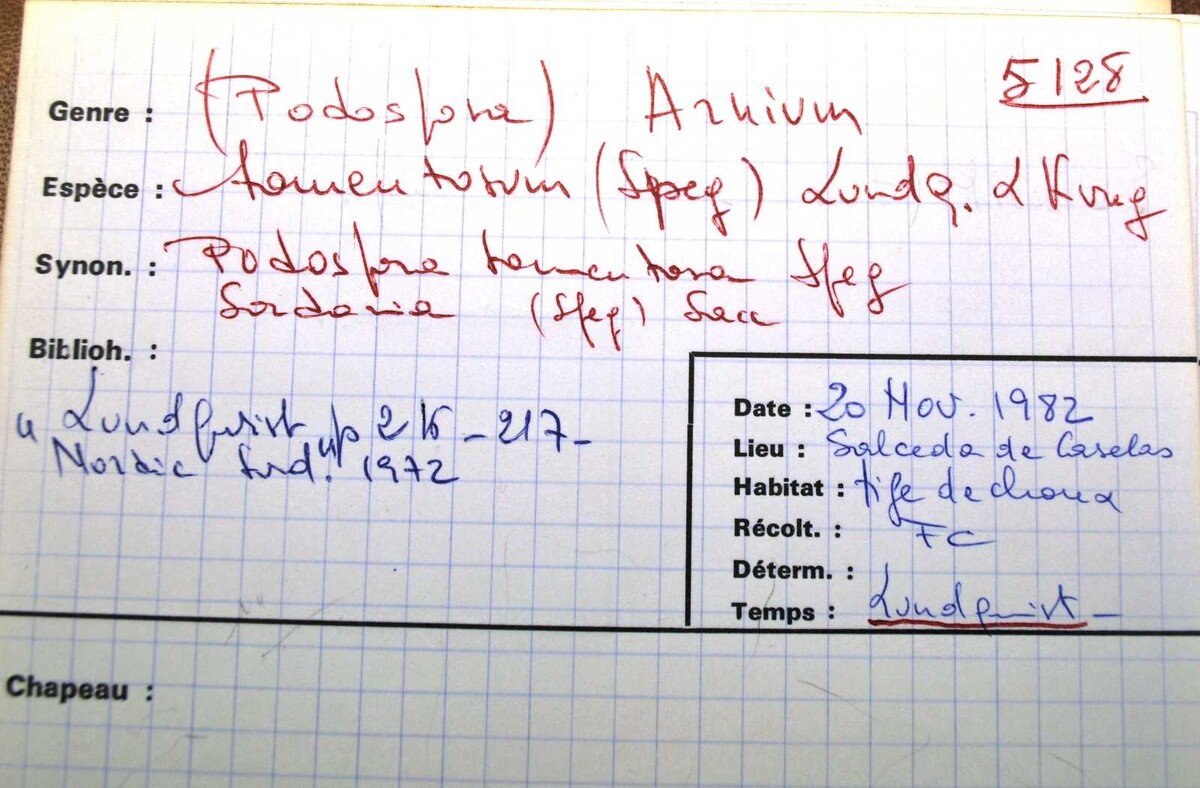 5128
Genre : (Podospora) Arnium
Espèce : tomentosum (Speg) Lundq. & Krug
Synon. : Podospora tomentosa Speg
Sordaria (Speg) Sacc
Biblioh. :
Lundquist p 216-217-
Nordic Sord. 1972
Date : 20 Nov. 1982
Lieu : Salceda de Caselas
Habitat : tige de choux
Récolt. : FC
Déterm. :
Temps : Lundquist -
Chapeau :